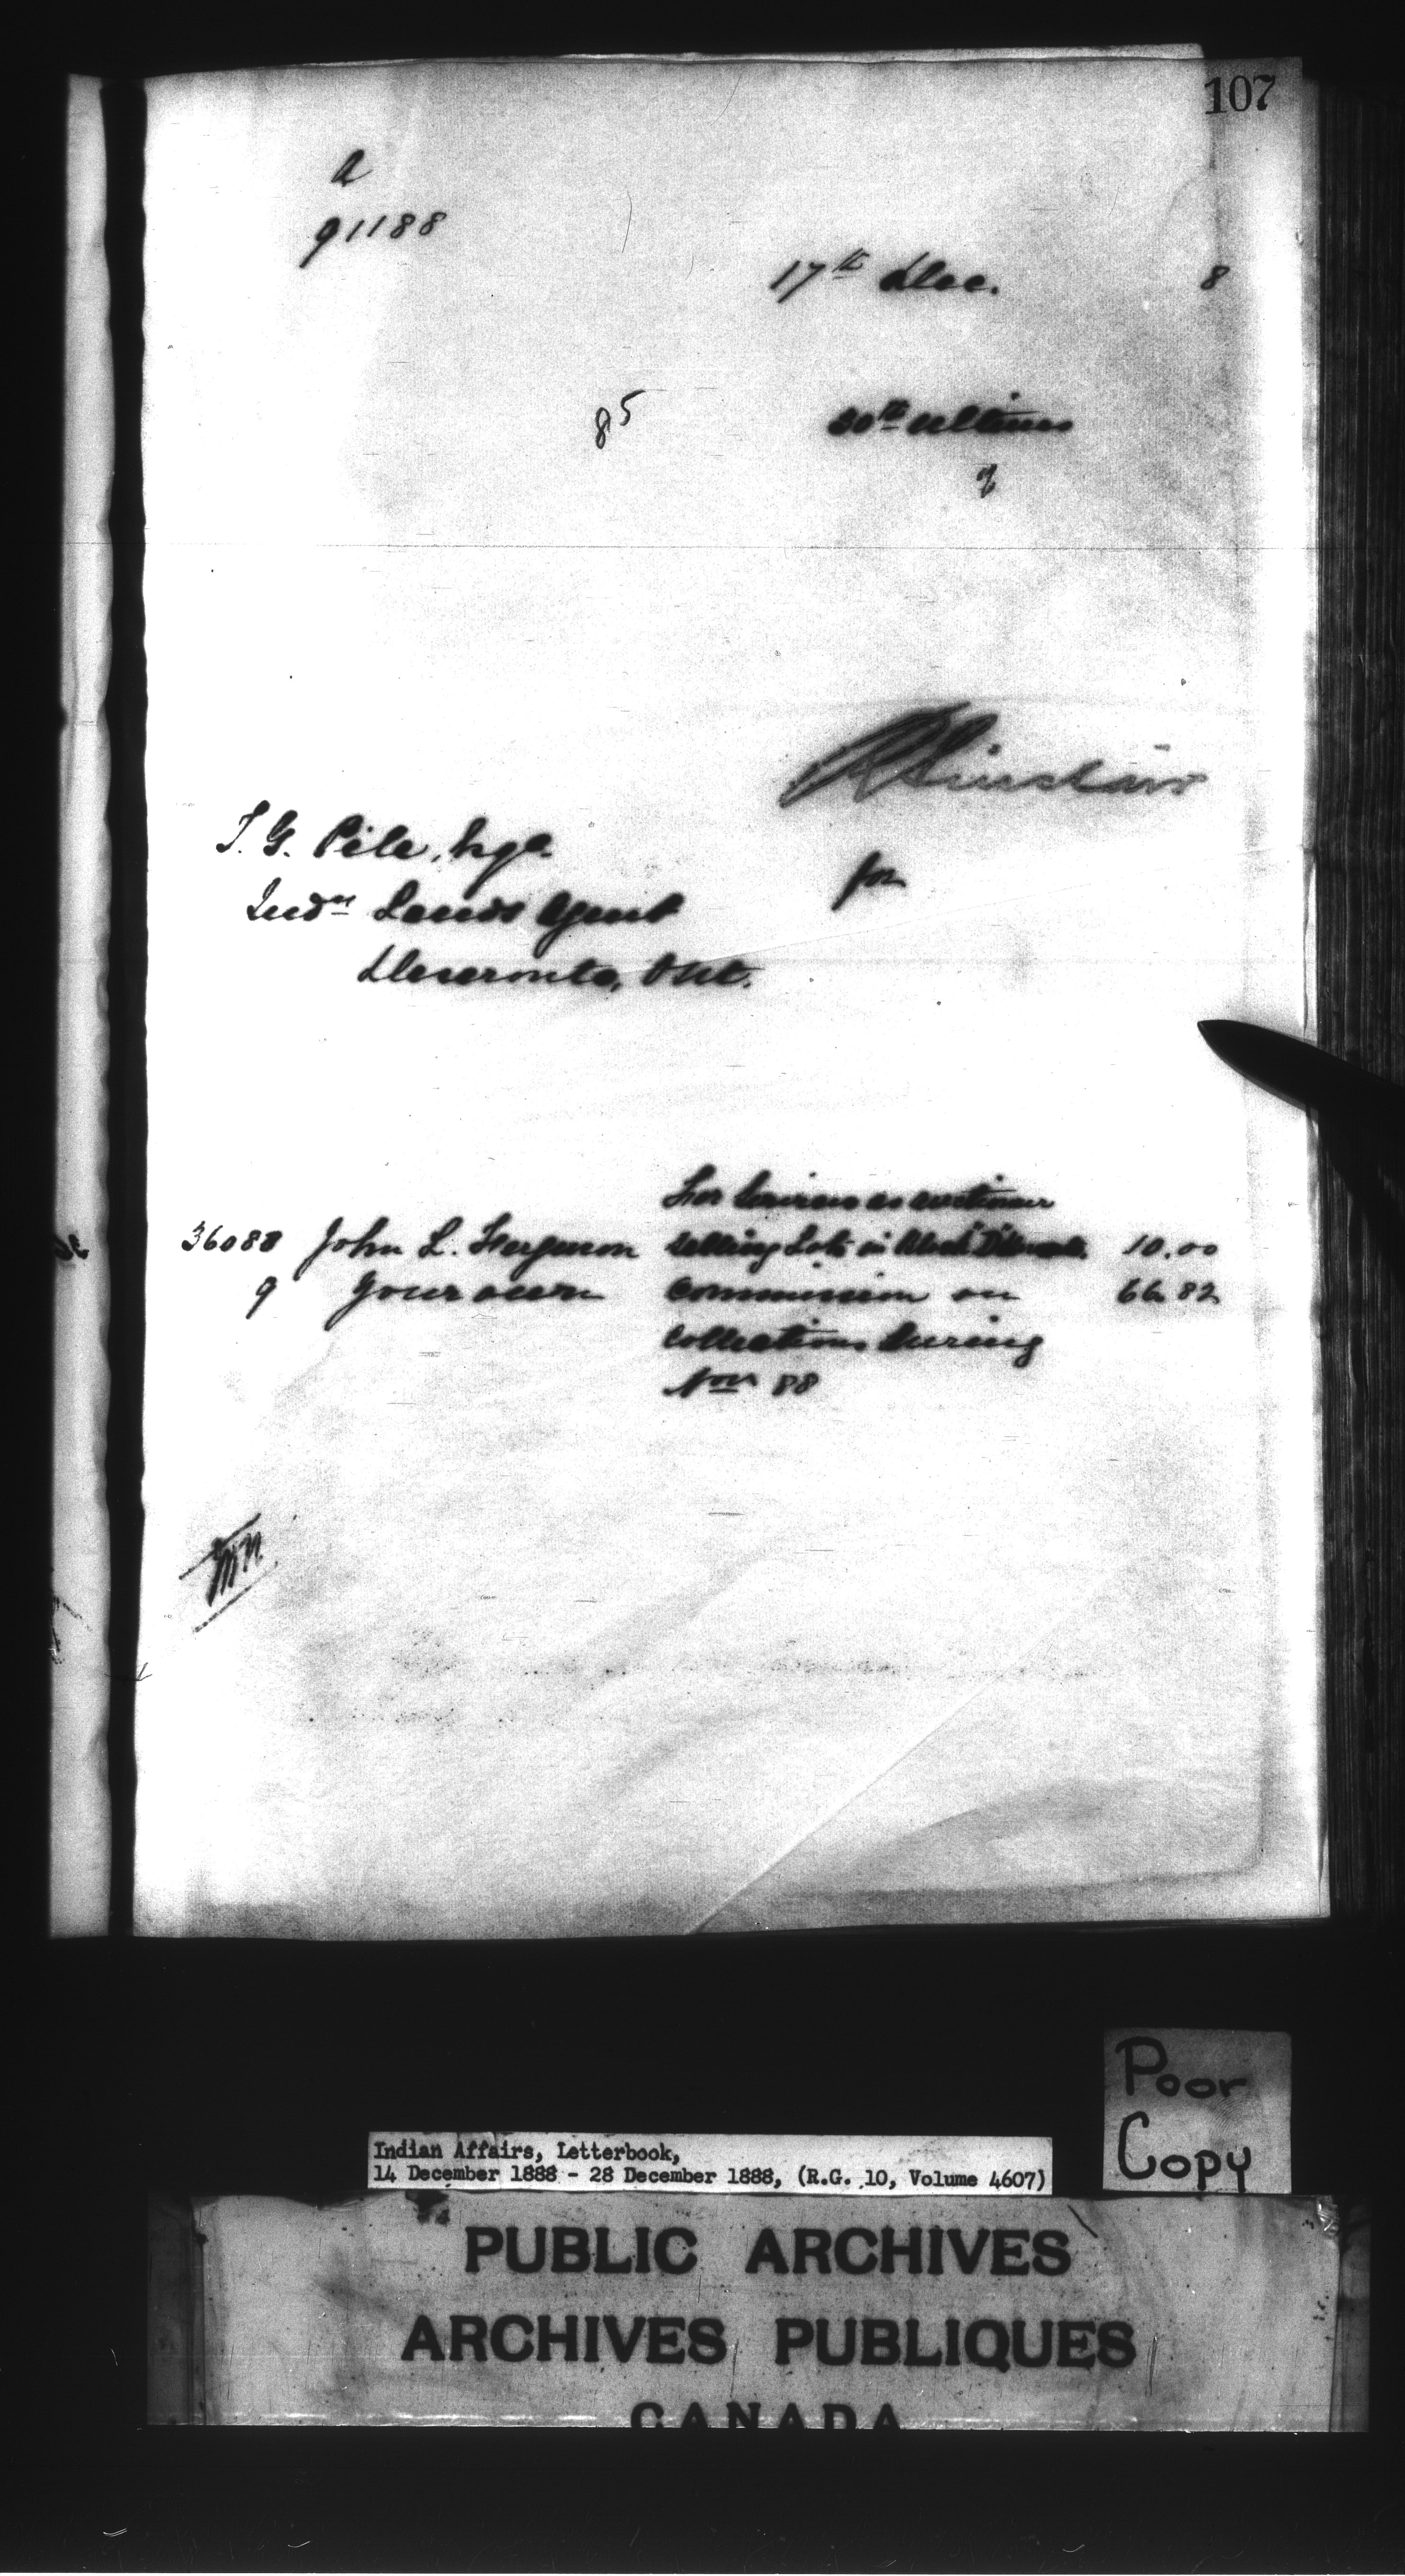 107
a
91188
17th Dec. 8
85 30th ultimo
of
R Sinclair
T. G. Pile, Esqe.
for
Indn Lands Agent
Deseronto, Ont.
For services as auctioneer
36088 John L. Ferguson selling Lots in 10.00
9 Your own Commission on 66.82
Collections during
Nov 88
Poor
Copy
Indian Affairs, Letterbook,
14 December 1888 - 28 December 1888, (R.G. 10, Volume 4607)
PUBLIC ARCHIVES
ARCHIVES PUBLIQUES
CANADA